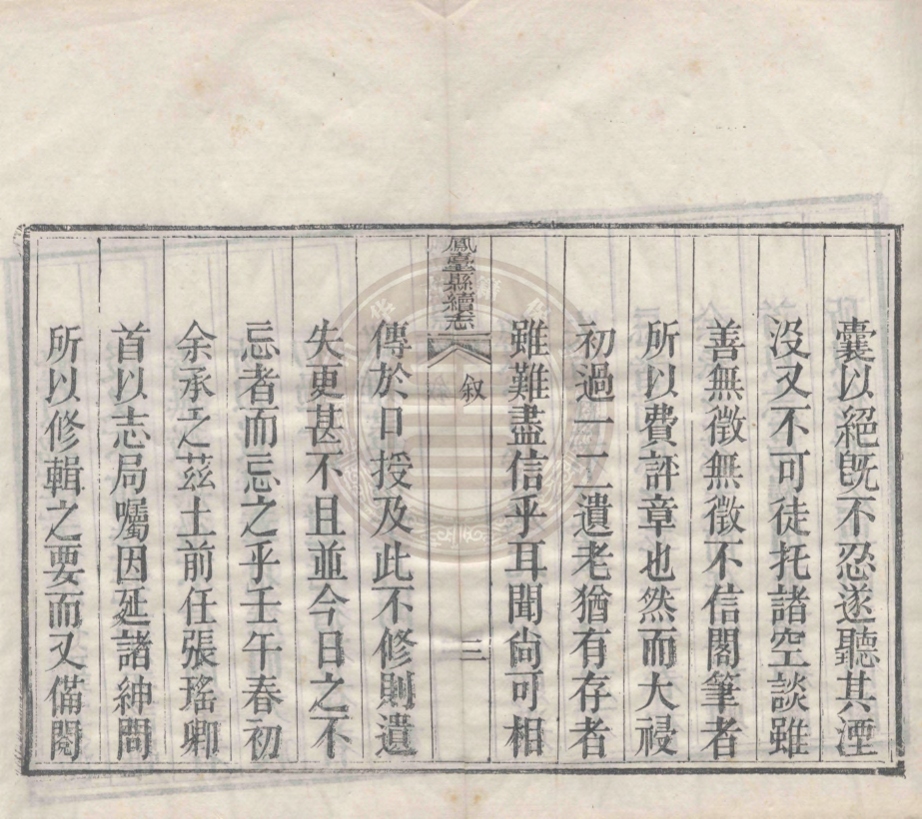 囊以絕旣不忍遂聽其湮
沒又不可徒托諸空談雖
善無徵無徵不信閣筆者
所以費評章也然而大祲
初過一二遺老猶有存者
雖難盡信乎耳聞尙可相
鳳臺縣續志 叙 三
傳於口授及此不修則遺
失更甚不且並今日之不
忘者而忘之乎壬午春初
余承乏茲土前任張瑤卿
首以志局囑因延諸紳問
所以修輯之要而又備閱